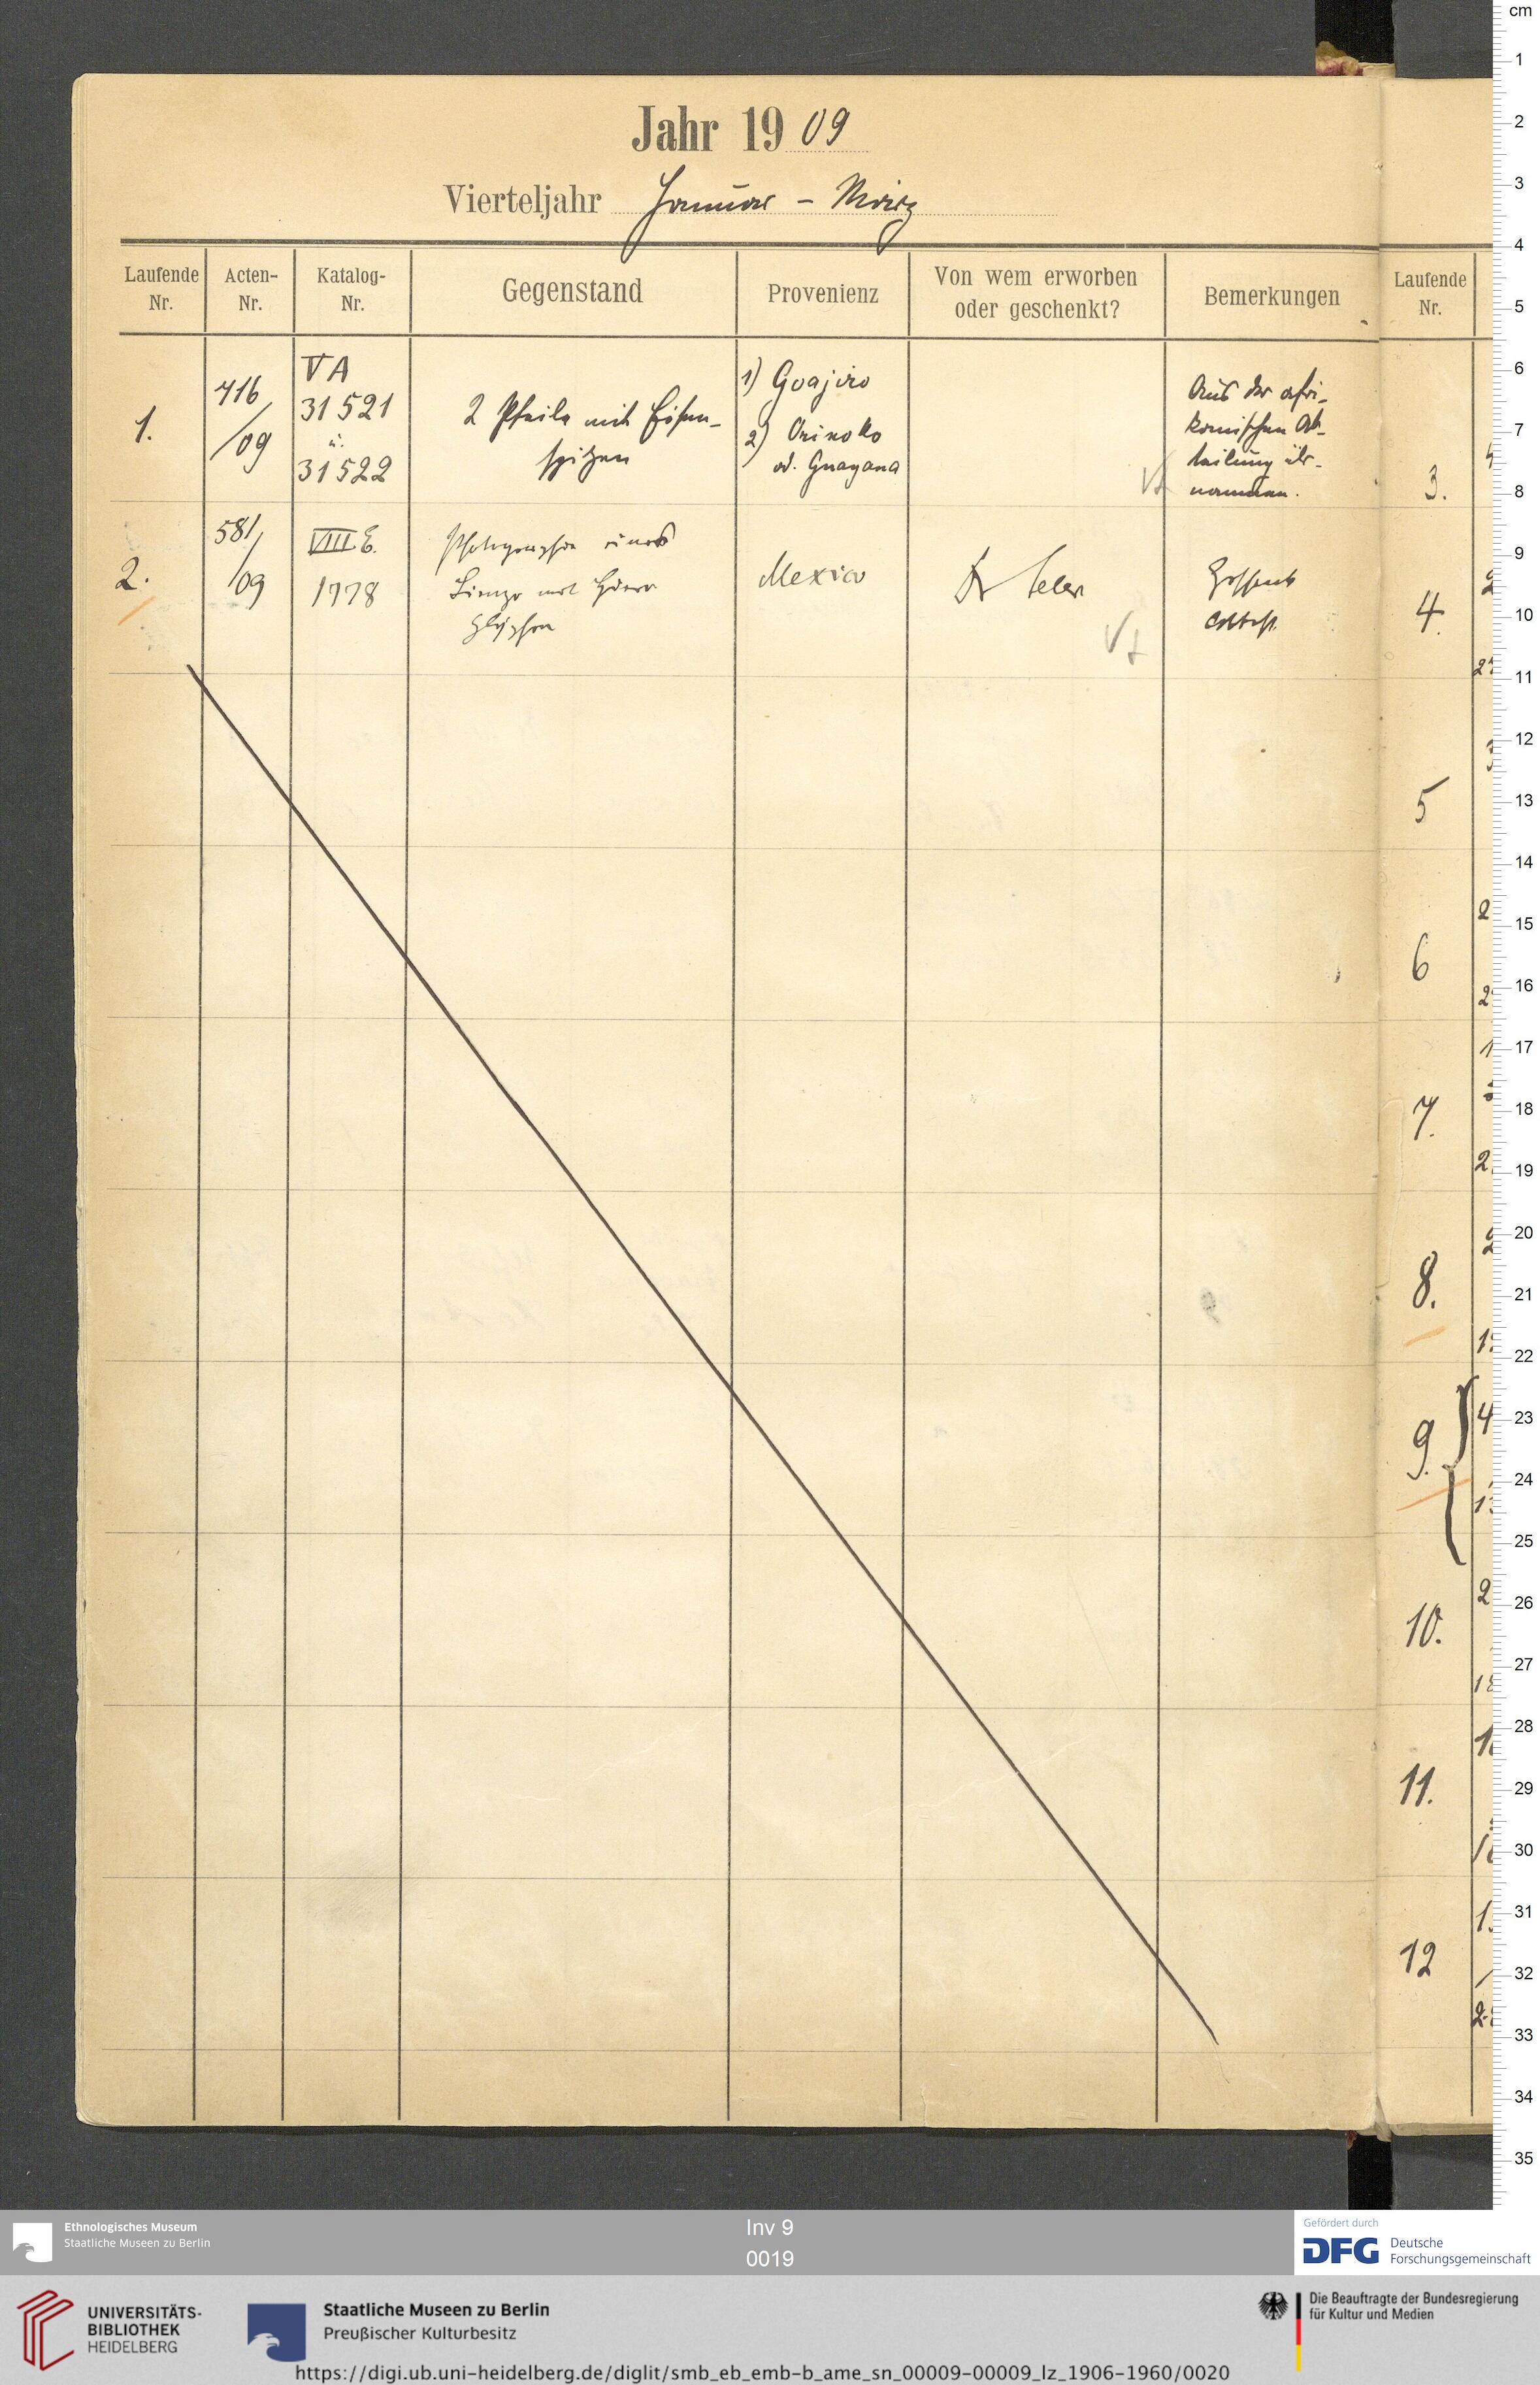 Jahr 1909
Vierteljahr Januar - März
Laufende Nr.
Acten-Nr.
Katalog-Nr.
Gegenstand
Provenienz
Von wem erworben oder geschenkt?
Bemerkungen
Laufende Nr.
1.
716/09
VA
31521
u.
31522
2 Pfeile mit Eisen-
spitzen
1) Goajiro
2) Orinoko
od. Guayana
Aus der afri-
kanischen Ab-
teilung über-
nommen.
2.
581/09
VIII E.
1778
Photographie eines
Lienzo mit Hiero
glyphen
Mexico
Dr Seler
Geschenk
3.
4.
5
6
7.
8.
9.
10.
11.
12
cm
1
2
3
4
5
6
7
8
9
10
11
12
13
14
15
16
17
18
19
20
21
22
23
24
25
26
27
28
29
30
31
32
33
34
35
Ethnologisches Museum
Staatliche Museen zu Berlin
Inv 9
0019
Gefördert durch
DFG Deutsche
Forschungsgemeinschaft
UNIVERSITÄTS-
BIBLIOTHEK
HEIDELBERG
Staatliche Museen zu Berlin
Preußischer Kulturbesitz
Die Beauftragte der Bundesregierung
für Kultur und Medien
https://digi.ub.uni-heidelberg.de/diglit/smb_eb_emb-b_ame_sn_00009-00009_lz_1906-1960/0020